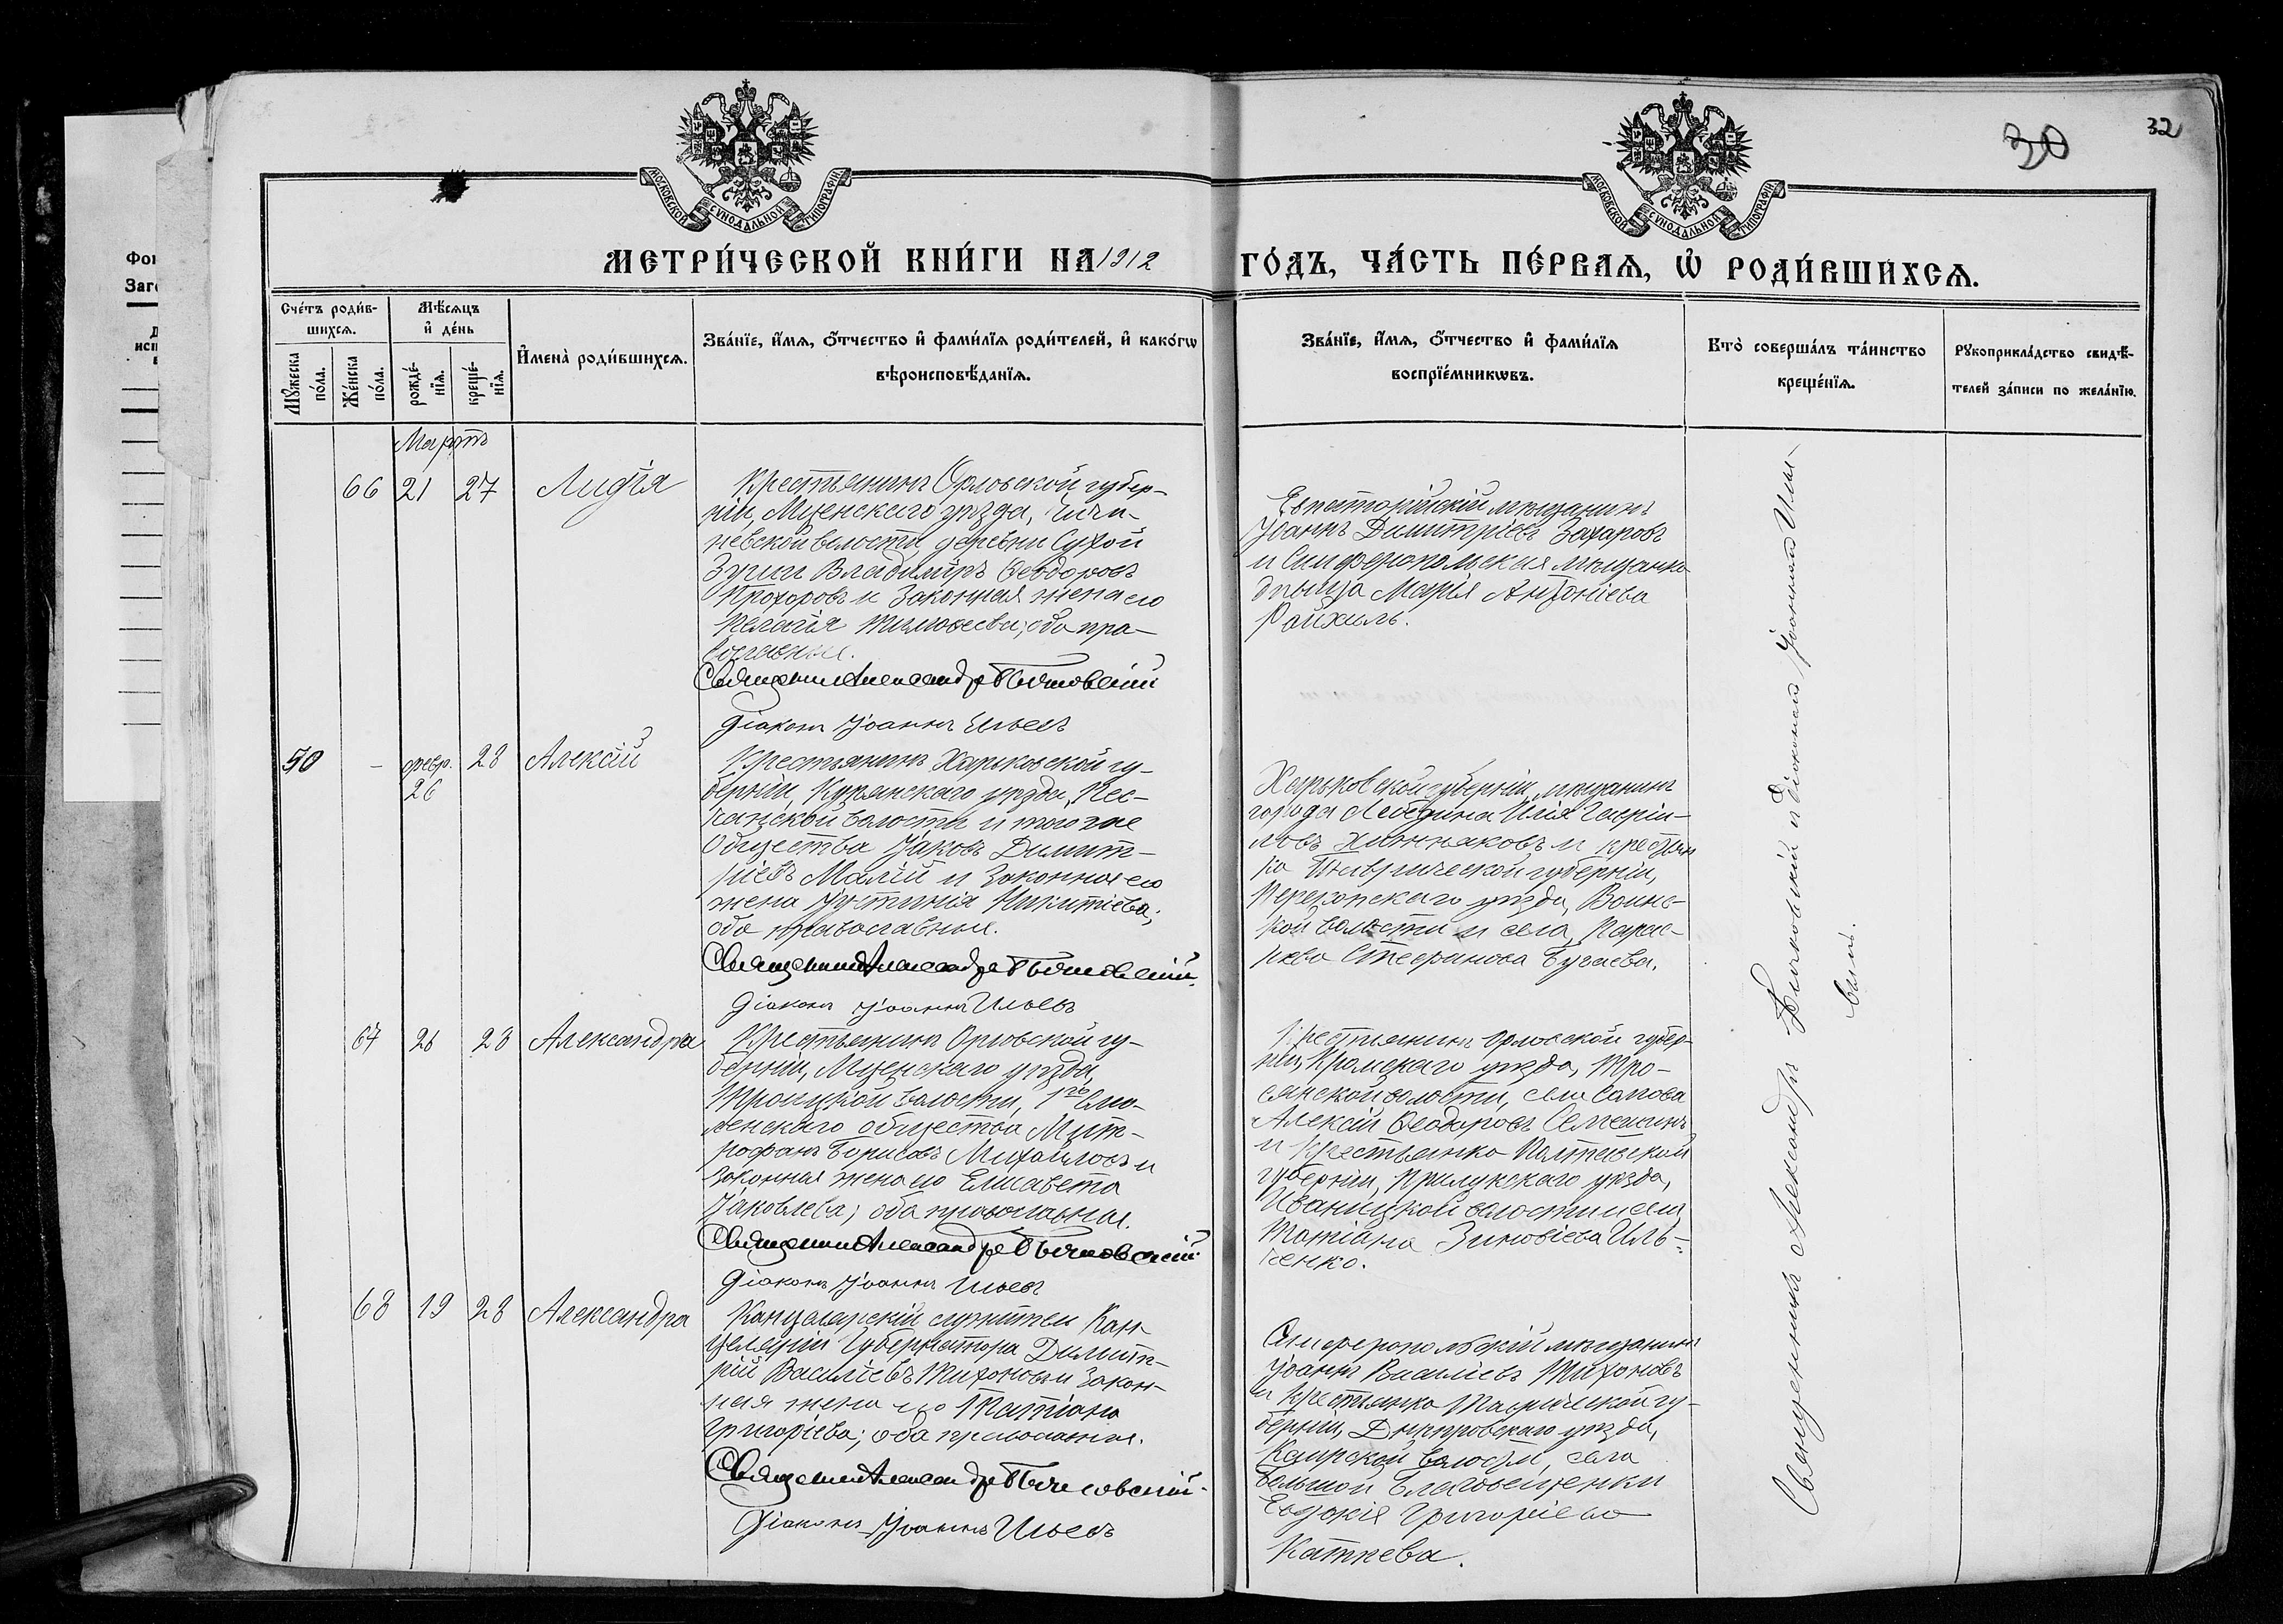 30
32
МОСКОВСКОЙ СѴНОДАЛЬНОЙ ТИПОГРАФІИ
МОСКОВСКОЙ СѴНОДАЛЬНОЙ ТИПОГРАФІИ
МЕТРИ́ЧЕСКОЙ КНИ́ГИ НА 1912 ГО́ДЪ, ЧА́СТЬ ПЕ́РВАѦ, Ѽ РОДИ́ВШИХСѦ.
Фон
Заго
Сче́тъ роди́в-
шихсѧ.
Мѣ́сѧцъ
и҆ де́нь
Мꙋ́жеска
по́ла.
Же́нска
по́ла.
рожде́-
нїѧ.
креще́-
нїѧ.
И҆мена̀ роди́вшихсѧ.
Зва́нїе, и҆́мѧ, ѻ҆́тчество и҆ фами́лїѧ роди́телей, и҆ како́гѡ
вѣроисповѣ́данїѧ.
Зва́нїе, и҆́мѧ, ѻ҆́тчество и҆ фами́лїѧ
воспрїе́мникѡвъ.
Кто̀ соверша́лъ та́инство
креще́нїѧ.
Рꙋкоприкла́дство свидѣ́-
телей за́писи по жела́нїю.
Мартъ
66 21 27 Лидія
Крестьянинъ Орловской губер-
ніи, Мценскаго уѣзда,
невской волости деревни Сухой
Зуши Владиміръ Ѳеодоровъ
Прохоровъ и законная жена его
Пелагія Тимоѳеева; оба пра-
вославные.
Священникъ Александръ Бычковскій
Діаконъ Іоаннъ Ильевъ
Евпаторійскій мѣщанинъ
Іоаннъ Димитріевъ Захаровъ
и Симферопольская мѣщанка
дѣвица Марія Антоніева
Райхиль.
50 - февр. 26 28 Алексій
Крестьянинъ Харьковской гу-
берніи, Купянскаго уѣзда, Пес-
чанской волости и того же
общества Іаковъ Димит-
ріевъ Малій и законная его
жена Іустинія Никитіева;
оба православные.
Священникъ Александръ Бычковскій
Діаконъ Іоаннъ Ильевъ
Харьковской губерніи, мѣщанинъ
города Лебедина Илія Гавріи-
ловъ и крестьян
ка Таврической губерніи,
Перекопскаго уѣзда, Воинс-
кой волости и села,
Стефанова Бугаева.
67 26 28 Александра
Крестьянинъ Орловской гу-
берніи, Мценскаго уѣзда,
Троицкой волости, 1го Смо-
ленскаго общества Мит-
рофанъ Борисовъ Михайловъ и
законная жена его Елисавета
Іаковлева; оба православные.
Священникъ Александръ Бычковскій
Діаконъ Іоаннъ Ильевъ
Крестьянинъ Орловской губер-
ніи, Кромскаго уѣзда, Тро-
сянской волости, села Сомова
Алексій Ѳеодоровъ
и крестьянка Полтавской
губерніи, Прилукскаго уѣзда,
Иваницкой волости и села
Татіана Зиновіева Иль-
ченко.
68 19 28 Александра
Канцелярскій служитель Кан-
целяріи Губернатора Димит-
рій Василіевъ Тихоновъ и закон-
ная жена его Татіана
Григоріева; оба православные.
Священникъ Александръ Бычковскій
Діаконъ Іоаннъ Ильевъ
Симферопольскій мѣщанинъ
Іоаннъ Василіевъ Тихоновъ
и крестьянка Таврической гу-
берніи, Днѣпровскаго уѣзда,
Каирской волости, села
Большой Благовѣщенки
Евдокія Григоріева
Каткева.
Священникъ Александръ Бычковскій и Діаконъ Іоаннъ Иль-
евъ.